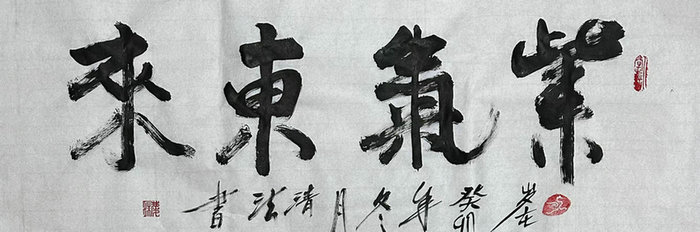 紫氣東來
歲在癸卯年冬月清法書